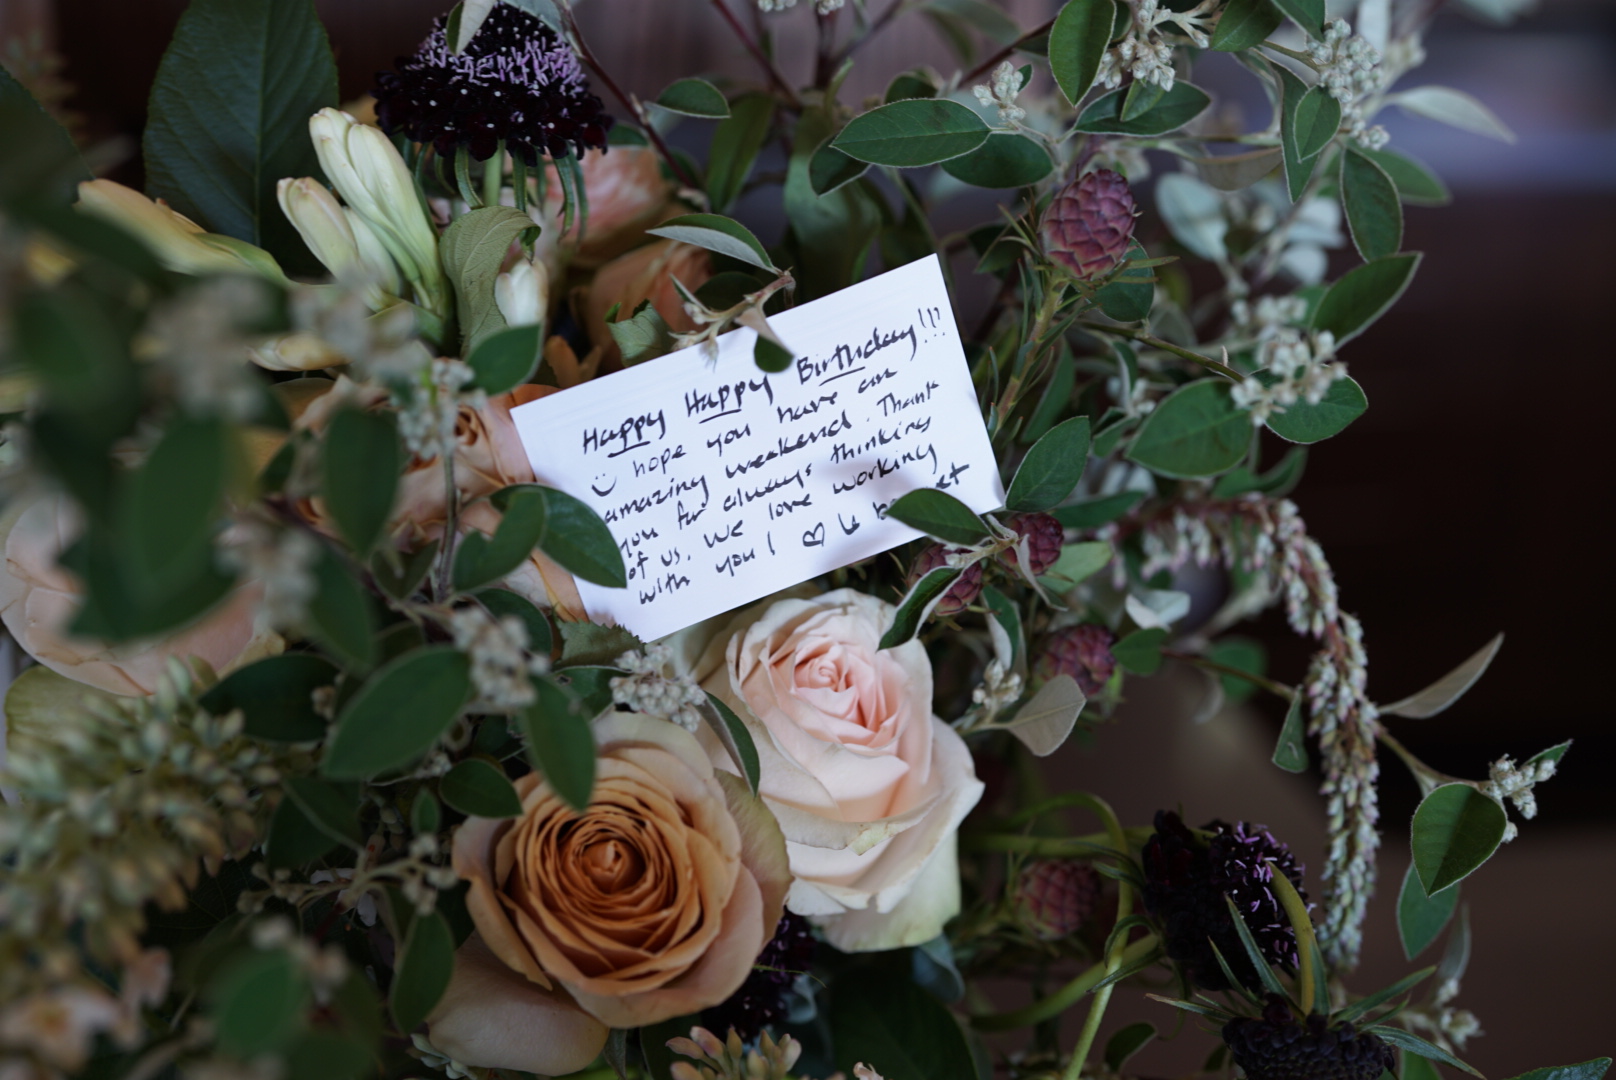 Happy Happy Birthday!!!
hope you have an
amazing weekend. Thank
you for always thinking
of us. We love working
with you! ♡